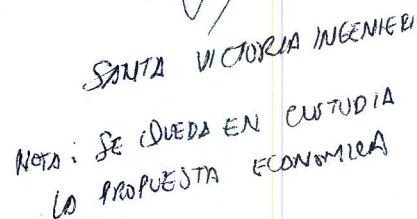 SANTA VICTORIA INGENIERI
NOTA: SE QUEDA EN CUSTUDIA
LA PROPUESTA ECONOMICA